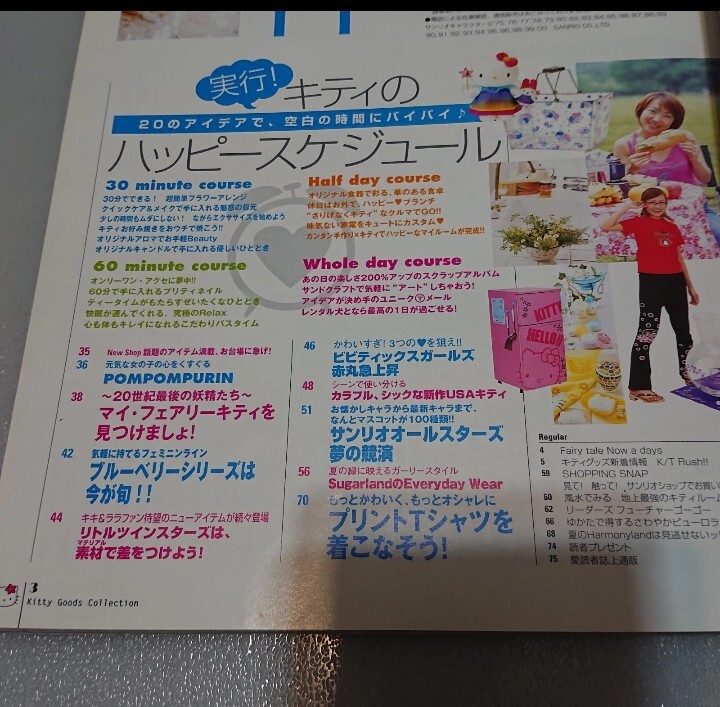 サンリオキャラクターズ'75,'76,'77,'78,'79,'80,'82,'83,'84,'85,'86,'87,'88,'89
'90,'91,'92,'93,'94,'95,'96,'98,'99,'00 SANRIO CO.,LTD
実行!
キティの
20のアイデアで、空白の時間にバイバイ♪
ハッピースケジュール
30 minute course
30分でできる! 超簡単フラワーアレンジ
クイックケア&メイクで手に入れる魅惑の目元
少しの時間もムダにしない! ながらエクササイズを始めよう
キティお好み焼きをおウチで焼こう!!
オリジナルアロマでお手軽Beauty
オリジナルキャンドルで手に入れる優しいひととき
60 minute course
オンリーワン・アクセに夢中!!
60分で手に入れるプリティネイル
ティータイムがもたらすぜいたくなひととき
快眠が運んでくれる、究極のRelax
心も体もキレイになれるこだわりバスタイム
Half day course
オリジナル食器で彩る、華のある食卓
休日はお外で、ハッピー♥ブランチ
"さりげなくキティ"なクルマでGO!!
味気ない家電をキュートにカスタム♥
カンタン手作り×キティでハッピーなマイルームが完成!!
Whole day course
あの日の楽しさ200%アップのスクラップアルバム
サンドクラフトで気軽に"アート"しちゃおう!
アイデアが決め手のユニーク〒メール
レンタル犬となら最高の1日が過ごせる!
35 New Shop 話題のアイテム満載、お台場に急げ!
36 元気な女の子の心をくすぐる
POMPOMPURIN
38 〜20世紀最後の妖精たち〜
マイ・フェアリーキティを
見つけましょ!
42 気軽に持てるフェミニンライン
ブルーベリーシリーズは
今が旬!!
44 キキ&ララファン待望のニューアイテムが続々登場
リトルツインスターズは、
マテリアル
素材で差をつけよう!
46 かわいすぎ! 3つの♥を狙え!!
ビビティックスガールズ
赤丸急上昇
48 シーンで使い分ける
カラフル、シックな新作USAキティ
51 お懐かしキャラから最新キャラまで、
なんとマスコットが100種類!!
サンリオオールスターズ
夢の競演
56 夏の緑に映えるガーリースタイル
SugarlandのEveryday Wear
70 もっとかわいく、もっとオシャレに
プリントTシャツを
着こなそう!
KITTY
HELLO
Regular
4 Fairy tale Now a days
5 キティグッズ新着情報 K/T Rush!!
59 SHOPPING SNAP
見て! 触って! サンリオショップでお買い
60 風水でみる 地上最強のキティルー
62 リーダーズ フューチャーゴーゴー
66 ゆかたで得するさわやかビューロラ
68 夏のHarmonylandは見逃せないッ
74 読者プレゼント
75 愛読者誌上通販
3
Kitty Goods Collection